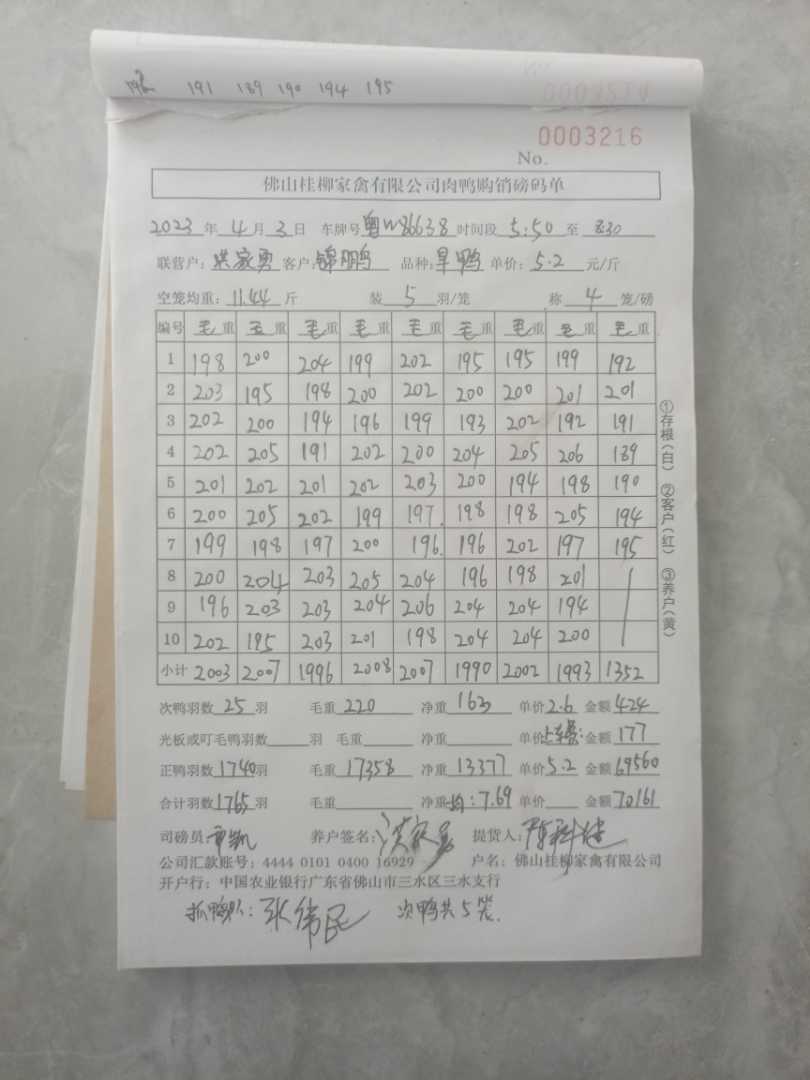 191 189 190 194 195
0003216
No.
佛山桂柳家禽有限公司肉鸭购销磅码单
2023年4月3日 车牌号粤W86638时间段5:50至8:30
联营户:洪家勇客户:锦鹏 品种:旱鸭 单价:5.2元/斤
空笼均重:11.44斤 装5羽/笼 称4笼/磅
编号 毛重 毛重 毛重 毛重 毛重 毛重 毛重 毛重 毛重
1 198 200 204 199 202 195 195 199 192
2 203 195 198 200 202 200 200 201 201
3 202 200 194 196 199 193 202 192 191
4 202 205 191 202 200 204 205 206 189
5 201 202 201 202 203 200 194 198 190
6 200 205 202 199 197 198 198 205 194
7 199 198 197 200 196 196 202 197 195
8 200 204 203 205 204 196 198 201
9 196 203 203 204 206 204 204 194
10 202 195 203 201 198 204 204 200
小计 2003 2007 1996 2008 2007 1990 2002 1993 1352
①存根(白) ②客户(红) ③养户(黄)
次鸭羽数25羽 毛重220 净重163 单价2.6 金额424
光板或叮毛鸭羽数 羽 毛重 净重 单价 金额177
正鸭羽数1740羽 毛重17358 净重13377 单价5.2 金额69560
合计羽数1765羽 毛重 净重均:7.69 单价 金额70161
司磅员: 养户签名:洪家勇 提货人:
公司汇款账号:4444 0101 0400 16929 户名:佛山桂柳家禽有限公司
开户行:中国农业银行广东省佛山市三水区三水支行
抓鸭队:张伟民 次鸭共5笼.